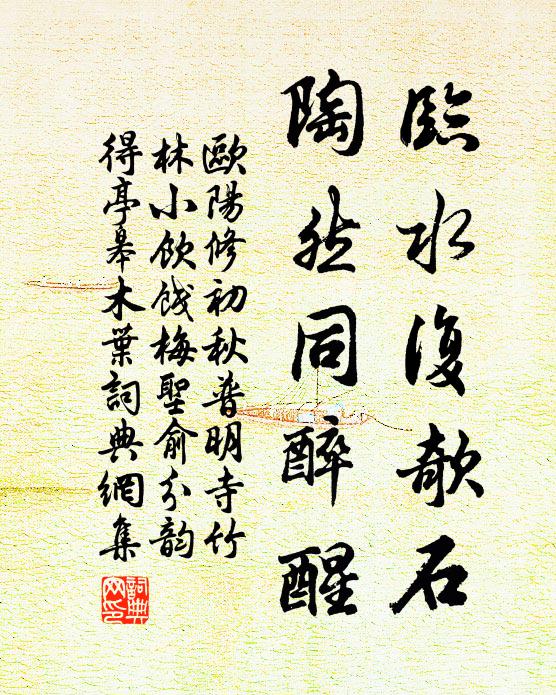 臨水復欹石
陶然同醉醒
歐陽修初秋普明寺竹
林小飲餞梅聖俞分韵
得亭皋木葉詞典網集
詞典
网印